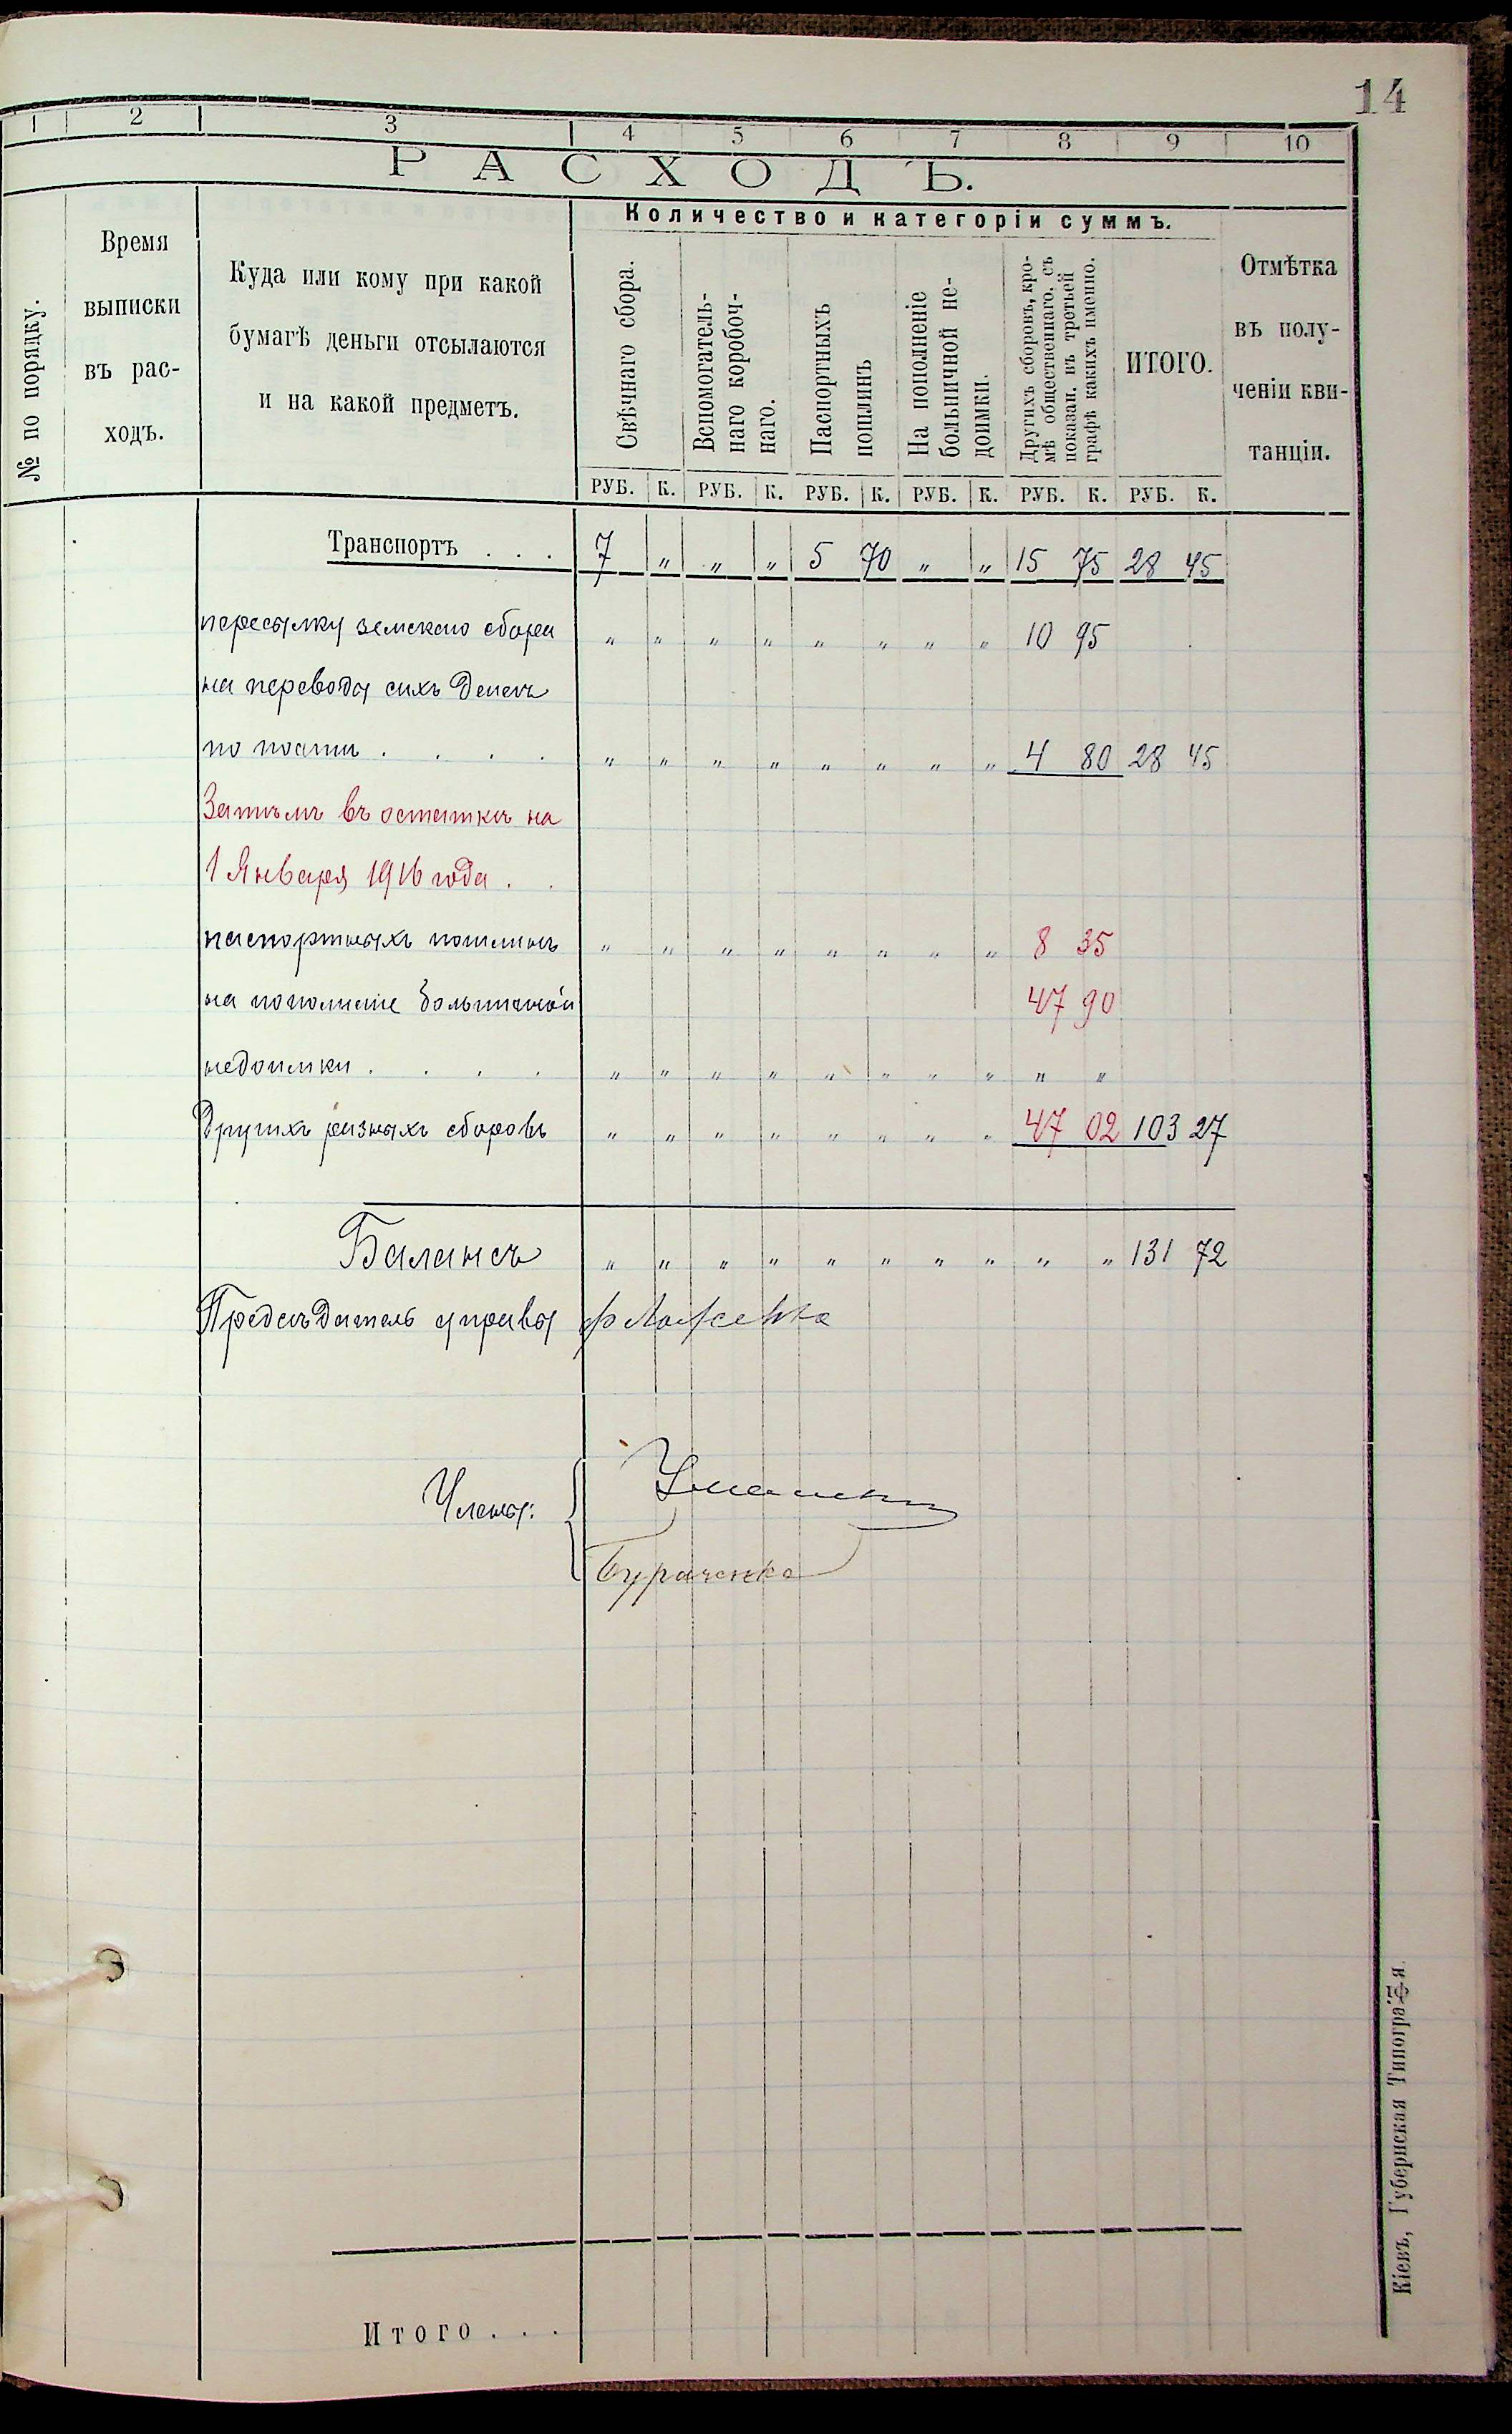 14
1 2 3 4 5 6 7 8 9 10
РАСХОДЪ.
№ по порядку.
Время
выписки
въ рас-
ходъ.
Куда или кому при какой
бумагѣ деньги отсылаются
и на какой предметъ.
Количество и категоріи суммъ.
Свѣчнаго сбора.
Вспомогатель-
наго коробоч-
наго.
Паспортныхъ
пошлинъ
На пополненіе
больничной не-
доимки.
Другихъ сборовъ, кро-
мѣ общественнаго, съ
показан. въ третьей
графѣ какихъ именно.
ИТОГО.
Отмѣтка
въ полу-
ченіи кви-
танціи.
РУБ. К. РУБ. К. РУБ. К. РУБ. К. РУБ. К. РУБ. К.
Транспортъ . . . 7 " " " 5 70 " " 15 75 28 45
пересылку земскаго сбора " " " " " " " " 10 95
на переводы сихъ денегъ
по почти . . . . " " " " " " " " 4 80 28 45
Затѣмъ въ остаткѣ на
1 Января 1916 года . .
паспортныхъ пошлинъ " " " " " " " " 8 35
на пополненіе больничной 47 90
недоимки . . . . " " " " " " " " " "
Другихъ разныхъ сборовъ " " " " " " " " 47 02 103 27
Балансъ " " " " " " " " " " 131 72
Предсѣдатель управы
Члены:
Бураченко
Итого . . .
Кіевъ, Губернская Типографія.